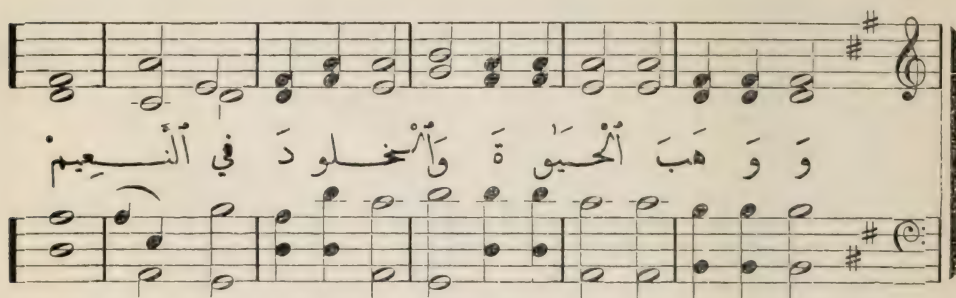 وَ وَ هَبَ ٱلْحَيٰوةَ وَٱلْخلودَ في ٱلنَّعِيمْ